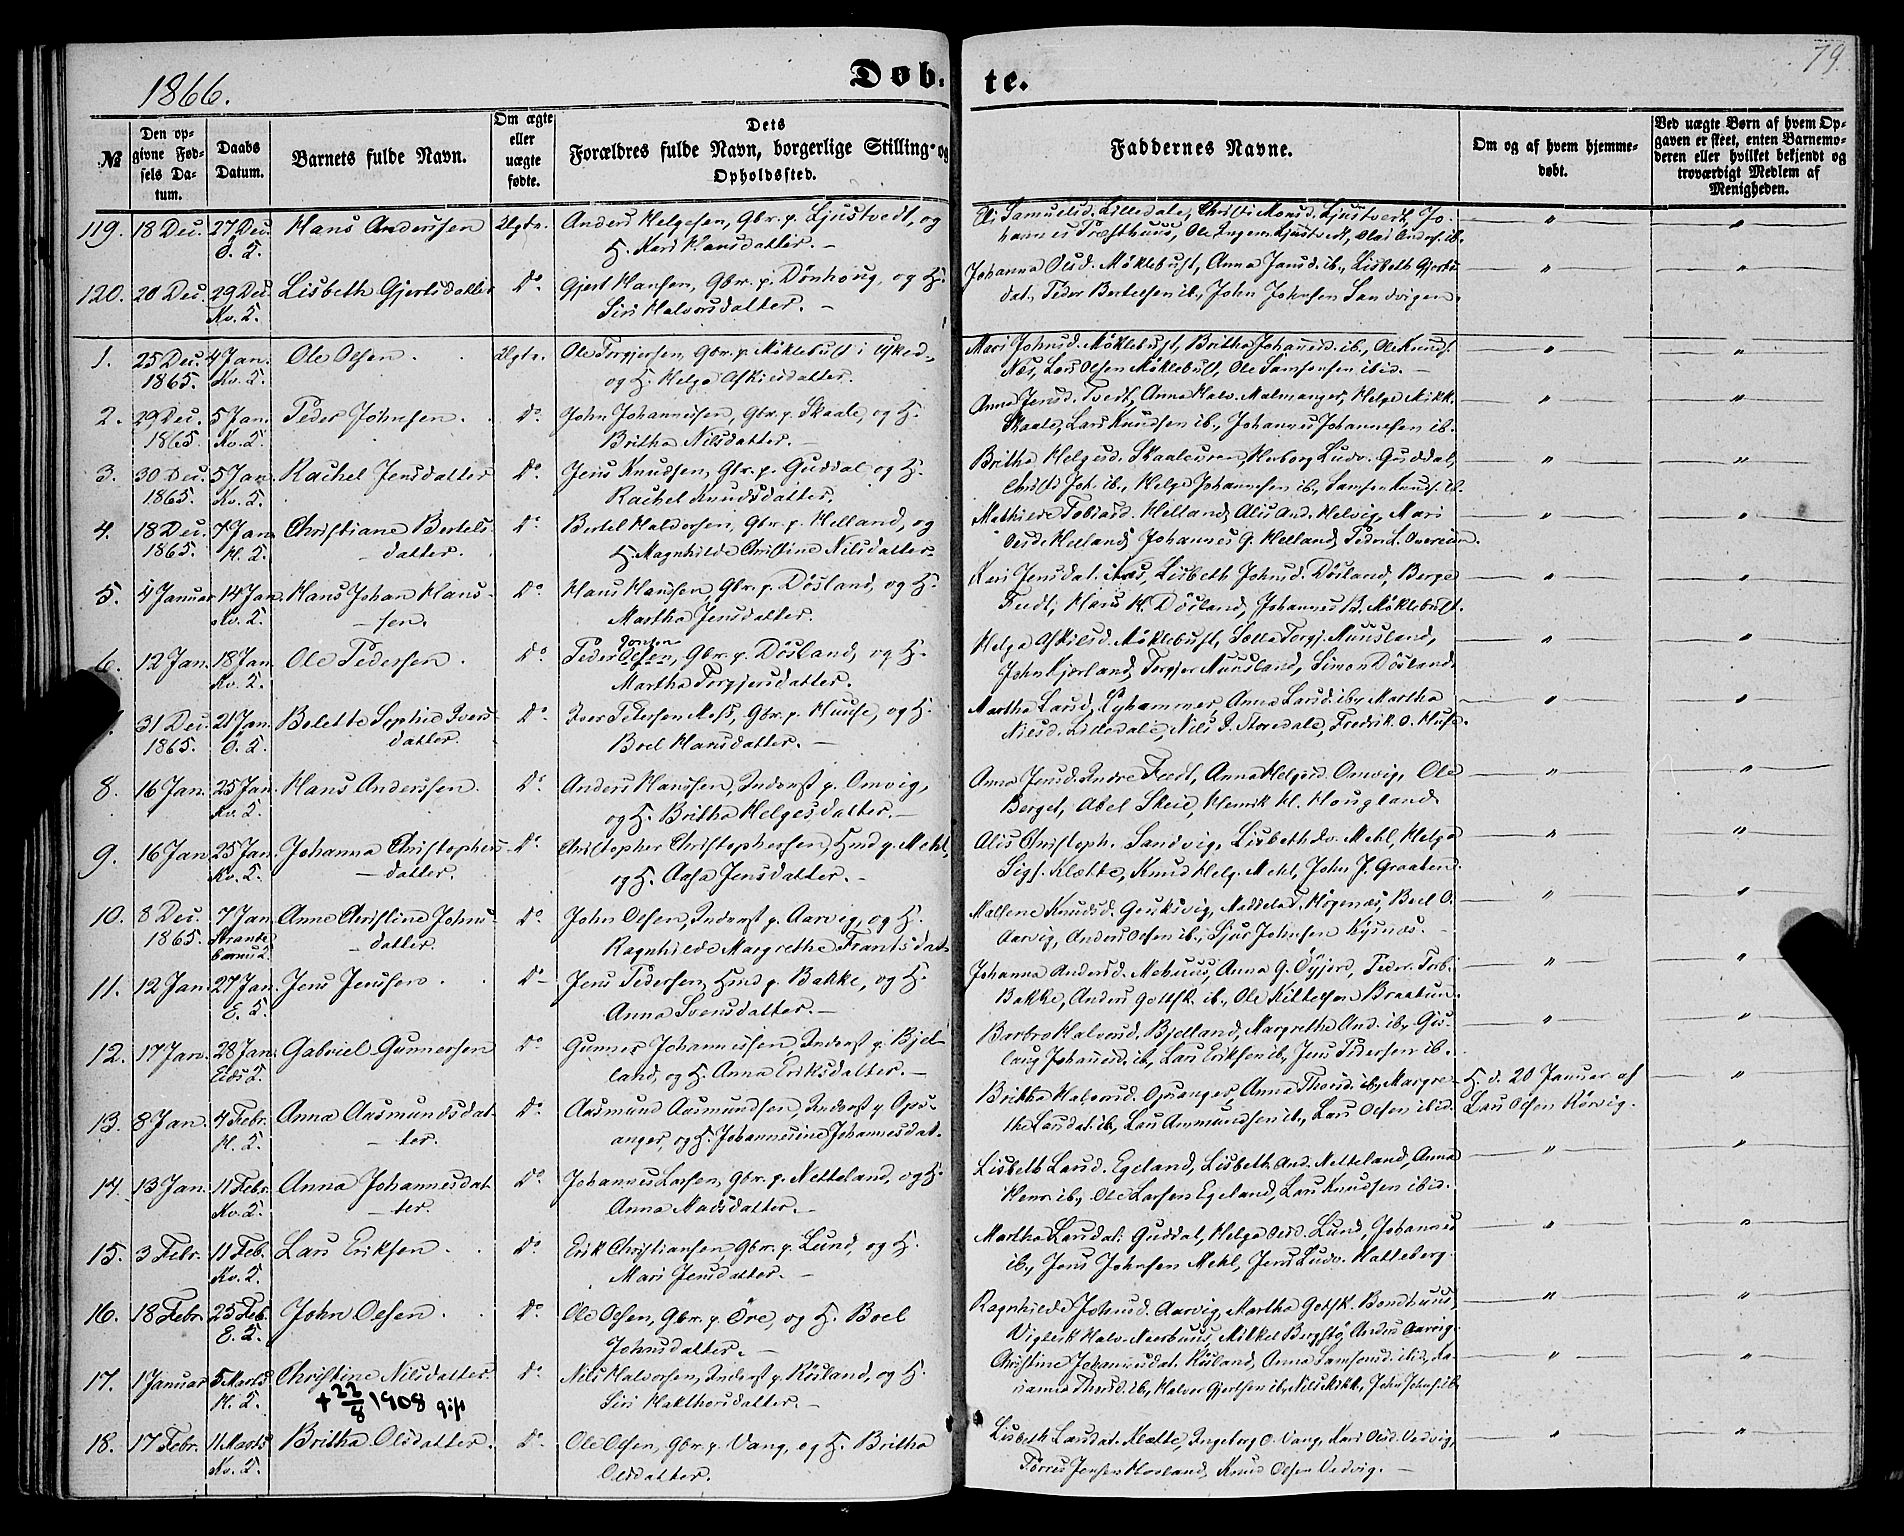 1866.
Døb-
te.
79.
№
Den op-
givne Fød-
sels Da-
tum.
Daabs
Datum.
Barnets fulde Navn.
Om ægte
eller
uægte
fødte.
Dets
Forældres fulde Navn, borgerlige Stilling og
Opholdssted.
Faddernes Navne.
Om og af hvem hjemme-
døbt.
Ved uægte Børn af hvem Op-
gaven er skeet, enten Barnemo-
deren eller hvilket bekjendt og
troværdigt Medlem af
Menigheden.
119. 18 Dec. 27 Dec. Hans Andersen Anders Helgesen, Gbr. p. Ljustvedt, og
Ø. K. H. Kari Hansdatter. —
120. 20 Dec. 29 Dec. Lisbeth Gjertsdatter Do Gjert Hansen, Gbr. p. Dønhoug, og H.
Kv. K. Siri Halvorsdatter. —
Johanna Olsd. Møklebust, Anna Jansd. ib., Lisbeth Gjerts
dat., Peder Bertelsen ib., John Johnsen Sandvigen.
1. 25 Dec. 4 Jan. Ole Olsen. Ole Torgjersen, Gbr. p. Møklebust i Usked.,
1865. Kv. K. og H. Helga Askilsdatter.
Mari Johnsd. Møklebust, Britha Johannsd. ib., Ole Knuds.
Næs, Lars Olsen Møklebust, Ole Samsonsen ibid. —
2. 29 Dec. 5 Jan. Peder Johnsen. Do John Johannessen, Gbr. p. Skaale, og H.
1865. Kv. K. Britha Nilsdatter. —
Anna Jensd. Tvedt, Anna Halv. Malmanger, Helge Mikk.
Skaale, Lars Knudsen ib., Johannes Johannesen ib.
3. 30 Dec. 5 Jan. Rachel Jensdatter Do Jens Knudsen, Gbr. p. Guddal og H.
1865. Kv. K. Rachel Knudsdatter.
Britha Helgesd. Skaaleuren, Herborg Ludv. Guddal,
Christi Joh. ib., Helge Johannesen ib., Samson Knuds. ib.
4. 18 Dec. 7 Jan. Christiane Bertels Do Bertel Haldorsen, Gbr. p. Helland, og
1865. H. K. — datter. H. Magnhilde Christine Nilsdatter.
Mathilde Tobiasd. Helland, Alis And. Helvig, Mari
Olsd. Helland, Johannes G. Helland, Peder L. Övereien.
5. 4 Januar 14 Jan. Hans Johan Hans- Do Hans Hanssen, Gbr. p. Døsland, og H.
Kv. K. — sen. Martha Jensdatter.
Kari Jensdat. Næs, Lisbeth Johnsd. Døsland, Berge
Tvedt, Hans H. Døsland, Johannes B. Møklebust.
6. 12 Jan. 18 Jan. Ole Pedersen. Do Peder Olsen, Gbr. p. Døsland, og H.
Kv. K. Martha Torgjersdatter.
Helga Askilsd. Møklebust, Torgj. Muusland,
John Kjærland, Torgjer Muusland, Simon Døsland.
31 Dec. 21 Jan. Bolette Sophie Ivers Do Iver Pedersen Moss, Gbr. p. Huuse, og H.
1865. Ø. K. datter. Boel Hansdatter. —
Martha Larsd. Lyhammer, Anna Larsd. ib., Martha
Nilsd. Lilledale, Nils I. Storedale, Fredrik O. Huse.
8. 16 Jan. 25 Jan. Hans Anderssen. Do Anders Hanssen, Inderst p. Omvig,
Kv. K. og H. Britha Helgesdatter. —
Anna Jensd. Indre Tvedt, Anna Helgesd. Omvig, Ole
Berget, Abel Skeie, Henrik H. Hougland.
9. 16 Jan. 25 Jan. Johanna Christophers Do Christopher Christophersen, Hmd p. Mehl,
Kv. K. — datter. og H. Aasa Jensdatter. —
Alis Christoph. Sandvig, Lisbeth Mehl, Helga
Sigs. Klætte, Knud Helg. Mehl, John J. Graaten.
10. 8 Dec. 7 Jan. Anne Christine Johns- Do John Olsen, Inderst p. Aarvig, og H.
1865. Strande — datter. Ragnhilde Margrethe Frantsdat
barms K.
Malene Knudsd. Boel O.
Aarvig, Anders Olsen ib., Sjur Johnsen Kysnæs. —
11. 12 Jan. 27 Jan. Jens Jensen. Do Jens Pedersen, Hmd p. Bakke, og H.
E. K. Anna Svensdatter. —
Johanna Andersd. Mehuus, Anna G. Øyjord, Peder Torb.
Bakke, Anders Gotsk. ib., Ole Kittelsen Braatun.
12. 17 Jan. 28 Jan. Gabriel Gunnersen Do Gunner Johannessen, Inderst p. Bjel-
Eids K. land, og H. Anna Eriksdatter. —
Barbro Halvorsd. Bjelland, Margrethe And. ib., Gis-
laug Johannesd. ib., Lars Eriksen ib., Jens Pedersen ib.
13. 8 Jan. 4 Febr. Anna Aasmundsdat- Do Aasmund Aasmundsen, Inderst p. Ops-
H. K. — ter. anger, og H. Johannesine Johannesdat.
Britha Halvorsd. Opsanger, Anna Thorsd. ib., Margre-
the Larsdat. ib., Lars Ammundsen ib., Lars Olsen ibid.
H. d. 20 Januar af
Lars Olsen Rørvig.
14. 13 Jan. 11 Febr. Anna Johannesdat- Do Johannes Larsen, Gbr. p. Netteland, og H.
Kv. K. — ter. Anna Madsdatter. —
Lisbeth Larsd. Egeland, Lisbeth And. Netteland, Anna
Henr. ib., Ole Larsen Egeland, Lars Knudsen ibid.
15. 3 Febr. 11 Feb. Lars Eriksen. Do Erik Christiansen, Gbr. p. Lund, og H.
Kv. K. Mari Jensdatter. —
Martha Larsdat. Guddal, Helga Olsd. Lund, Johannes
ib., Jens Johnsen Mehl, Jens Ludv. Hatteberg.
16. 18 Febr. 25 Feb. John Olsen. Do Ole Olsen, Gbr. p. Øre, og H. Boel
E. K. Johnsdatter. —
Ragnhilde Johnsd. Aarvig, Martha Gotsk. Bondhuus,
Vigleik Halv. Neerhuus, Mikkel Bergstø, Anders Aarvig.
17. 1 Januar 5 Marts Christine Nilsdatter. Do Nils Halvorsen, Inderst p. Røsland, og H.
H. K. + 22/8 1908 gift Siri Halthorsdatter. —
Christine Johannesdat. Røsland, Anna Samsonsd. ibid.,
Thorsd. ib., Halvor Gjertsen ib., Nils Mikk., John Johns. ib.
18. 17 Febr. 11 Marts Britha Olsdatter. Do Ole Olsen, Gbr. p. Vang, og H. Britha
Kv. K. Olsdatter.
Lisbeth Larsdat. Klætte, Ingeborg O. Vang, Kari Olsd. Vedvig,
Tørres Jensen Hovland, Knud Olsen Vedvig. —